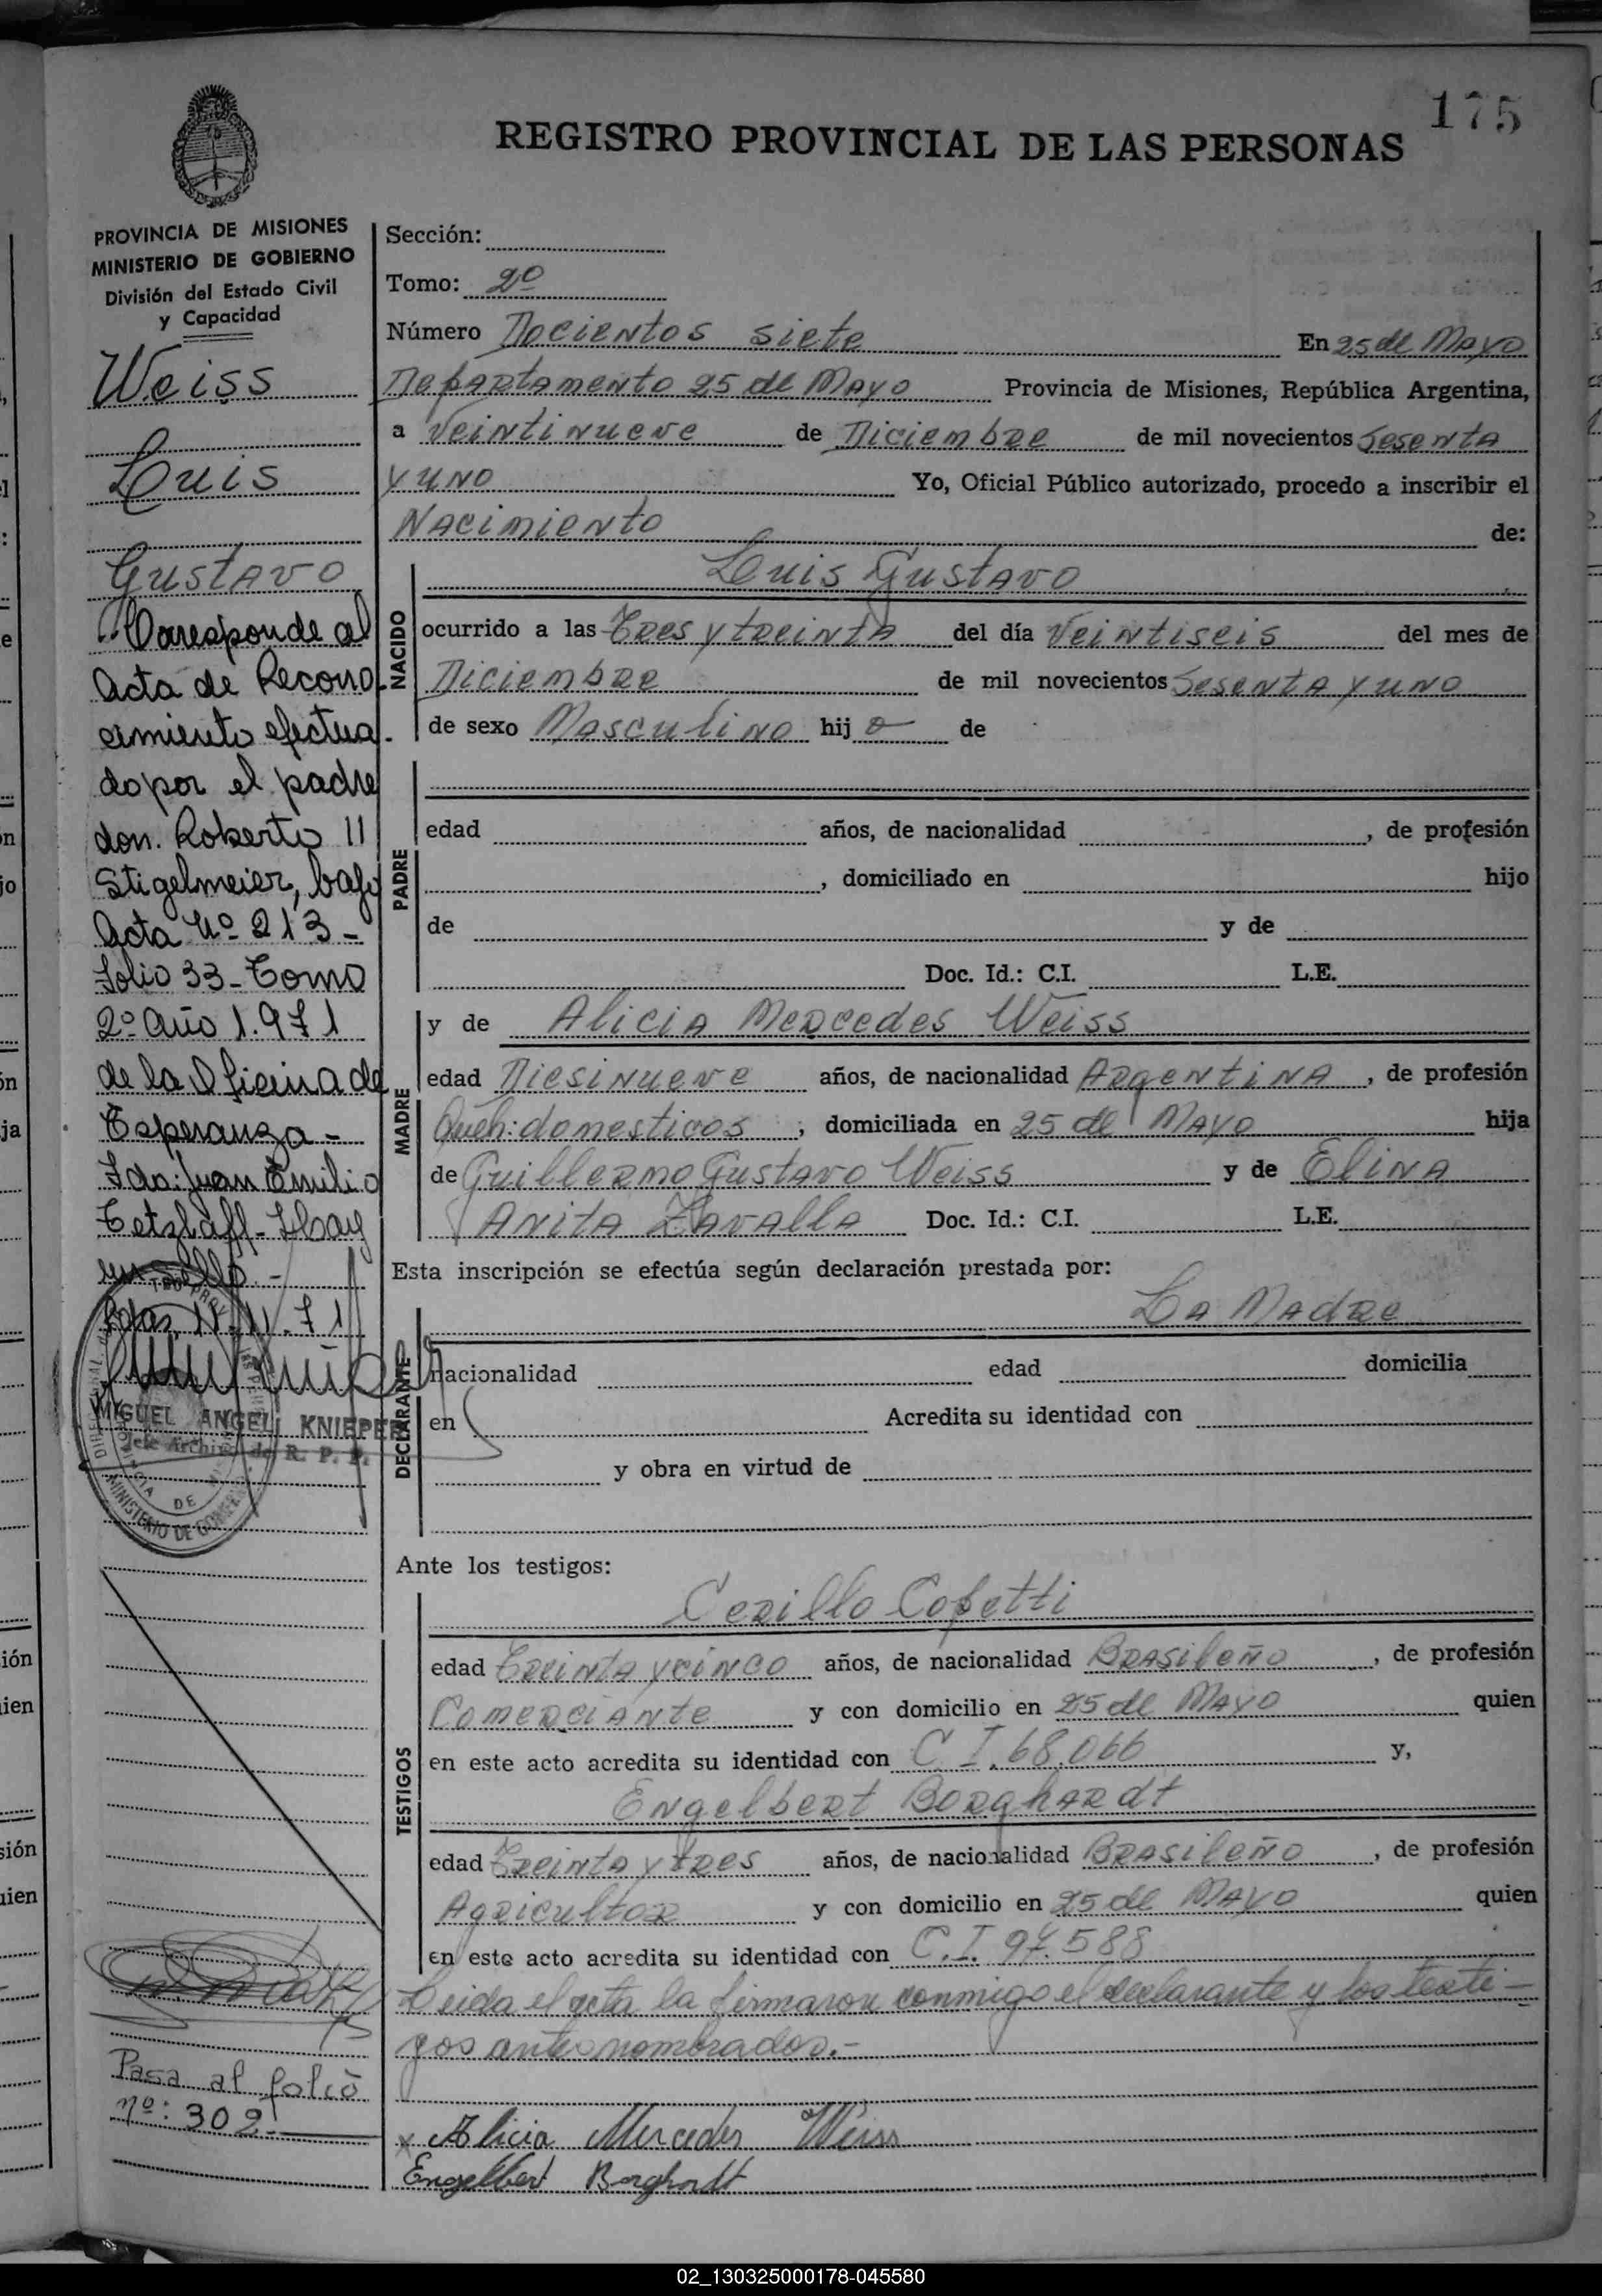 175
REGISTRO PROVINCIAL DE LAS PERSONAS
PROVINCIA DE MISIONES
MINISTERIO DE GOBIERNO
División del Estado Civil
y Capacidad
Weiss
Luis
Gustavo
Corresponde al
Acta de Recono
cimiento efectua-
do por el padre
don. Roberto
Stigelmeier, bajo
Acta Nº 213-
Folio 33-Tomo
2º Año 1.971
de la Oficina de
Esperanza-
Fdo: Juan Emilio
Tetzlaff-Hay
un sello.-
Pdas, 11.71
MIGUEL ANGEL KNIEPER
Jefe Archivo de R. P. P.
MINISTERIO DE GOBIERNO
Pasa al folio
nº: 302-
Sección:
Tomo: 2º
Número Docientos siete En 25 de Mayo
Departamento 25 de Mayo Provincia de Misiones, República Argentina,
a Veintinueve de Diciembre de mil novecientos Sesenta
y uno Yo, Oficial Público autorizado, procedo a inscribir el
Nacimiento de:
NACIDO
Luis Gustavo
ocurrido a las Tres y treinta del día Veintiseis del mes de
Diciembre de mil novecientos Sesenta y uno
de sexo Masculino hij o de
PADRE
edad años, de nacionalidad , de profesión
, domiciliado en hijo
de y de
Doc. Id.: C.I. L.E.
MADRE
y de Alicia Mercedes Weiss
edad Diesinueve años, de nacionalidad Argentina , de profesión
Queh: domesticos , domiciliada en 25 de Mayo hija
de Guillermo Gustavo Weiss y de Elina
Anita Zavalla Doc. Id.: C.I. L.E.
Esta inscripción se efectúa según declaración prestada por:
La Madre
DECLARANTE
nacionalidad edad domicilia
en Acredita su identidad con
y obra en virtud de
Ante los testigos:
TESTIGOS
Cerillo Copetti
edad Treinta y cinco años, de nacionalidad Brasileño , de profesión
Comerciante y con domicilio en 25 de Mayo quien
en este acto acredita su identidad con C.I. 68.066 y,
Engelbert Borghardt
edad Treinta y tres años, de nacionalidad Brasileño , de profesión
Agricultor y con domicilio en 25 de Mayo quien
en este acto acredita su identidad con C.I. 97.588
Leida el acta la firmaron conmigo el declarante y los testi-
gos antes nombrados.-
x Alicia Mercedes Weiss
Engelbert Borghardt
02_130325000178-045580